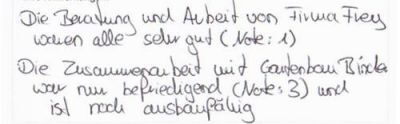 Die Beratung und Arbeit von Firma Frey
waren alle sehr gut (Note: 1)
Die Zusammenarbeit mit Gartenbau
war nur befriedigend (Note: 3) und
ist noch ausbaufähig